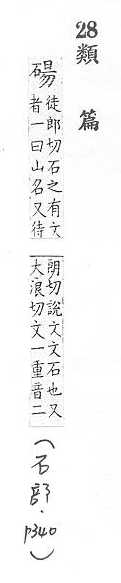 28
類篇
碭徒郎切石之有文
者一曰山名又待
朗切說文文石也又
大浪切文一重音二
(石部·p340)